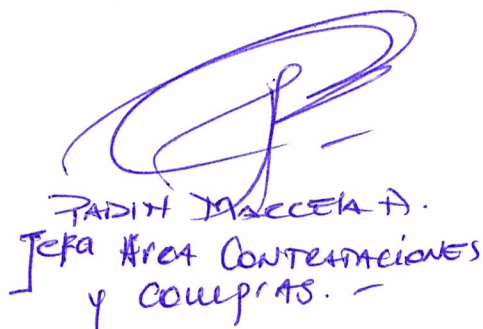 PADIN MARCELA A.
Jefa Area CONTRATACIONES
y COMPRAS. -